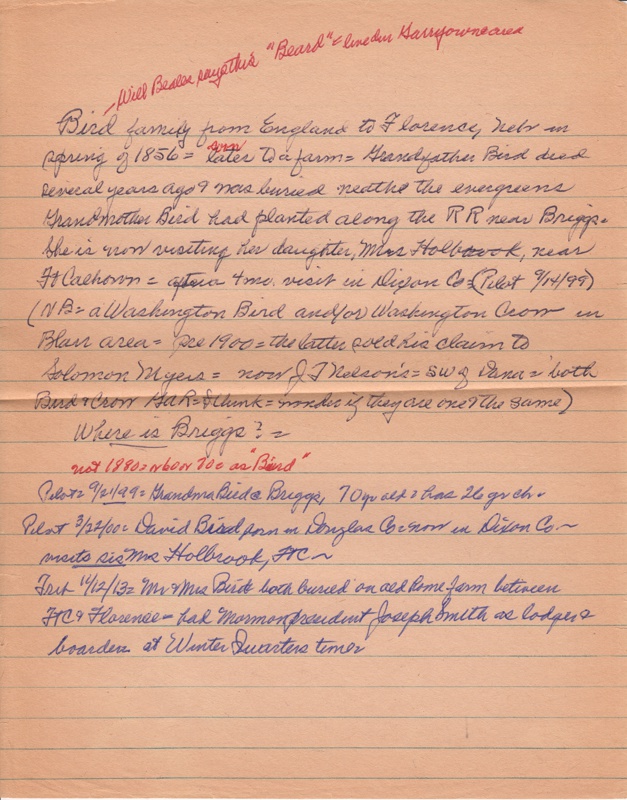 Will Beales says this is "Beard" = lived in Garryowne area
Bird family from England to Florence, Nebr in
spring of 1856 = later to a farm = Grandfather Bird died
soon
several years ago & was buried neathe the evergreens
Grandmother Bird had planted along the RR near Briggs.
She is now visiting her daughter, Mrs Holbrook, near
Ft Calhoun = after a 4 mo. visit in Dixon Co = (Pilot 9/14/99)
(NB = a Washington Bird and/or Washington Crow in
Blair area = pre 1900 = the latter sold his claim to
Solomon Myers = now J T Nelson's = SW of Dana = both
Bird & Crow GaR = I think = wonder if they are one & the same)
Where is Briggs? =
not 1880 = or 60 or 70 as "Bird"
Pilot = 9/21/99 = Grandma Bird @ Briggs, 70 yr old = has 26 gr ch.
Pilot 3/22/00 = David Bird born in Douglas Co = now in Dixon Co ~
visits sis Mrs Holbrook, FtC ~
Trib 11/12/13 = Mr & Mrs Bird both buried on old home farm between
FtC & Florence = had Mormon president Joseph Smith as lodger &
boarder at Winter Quarters time